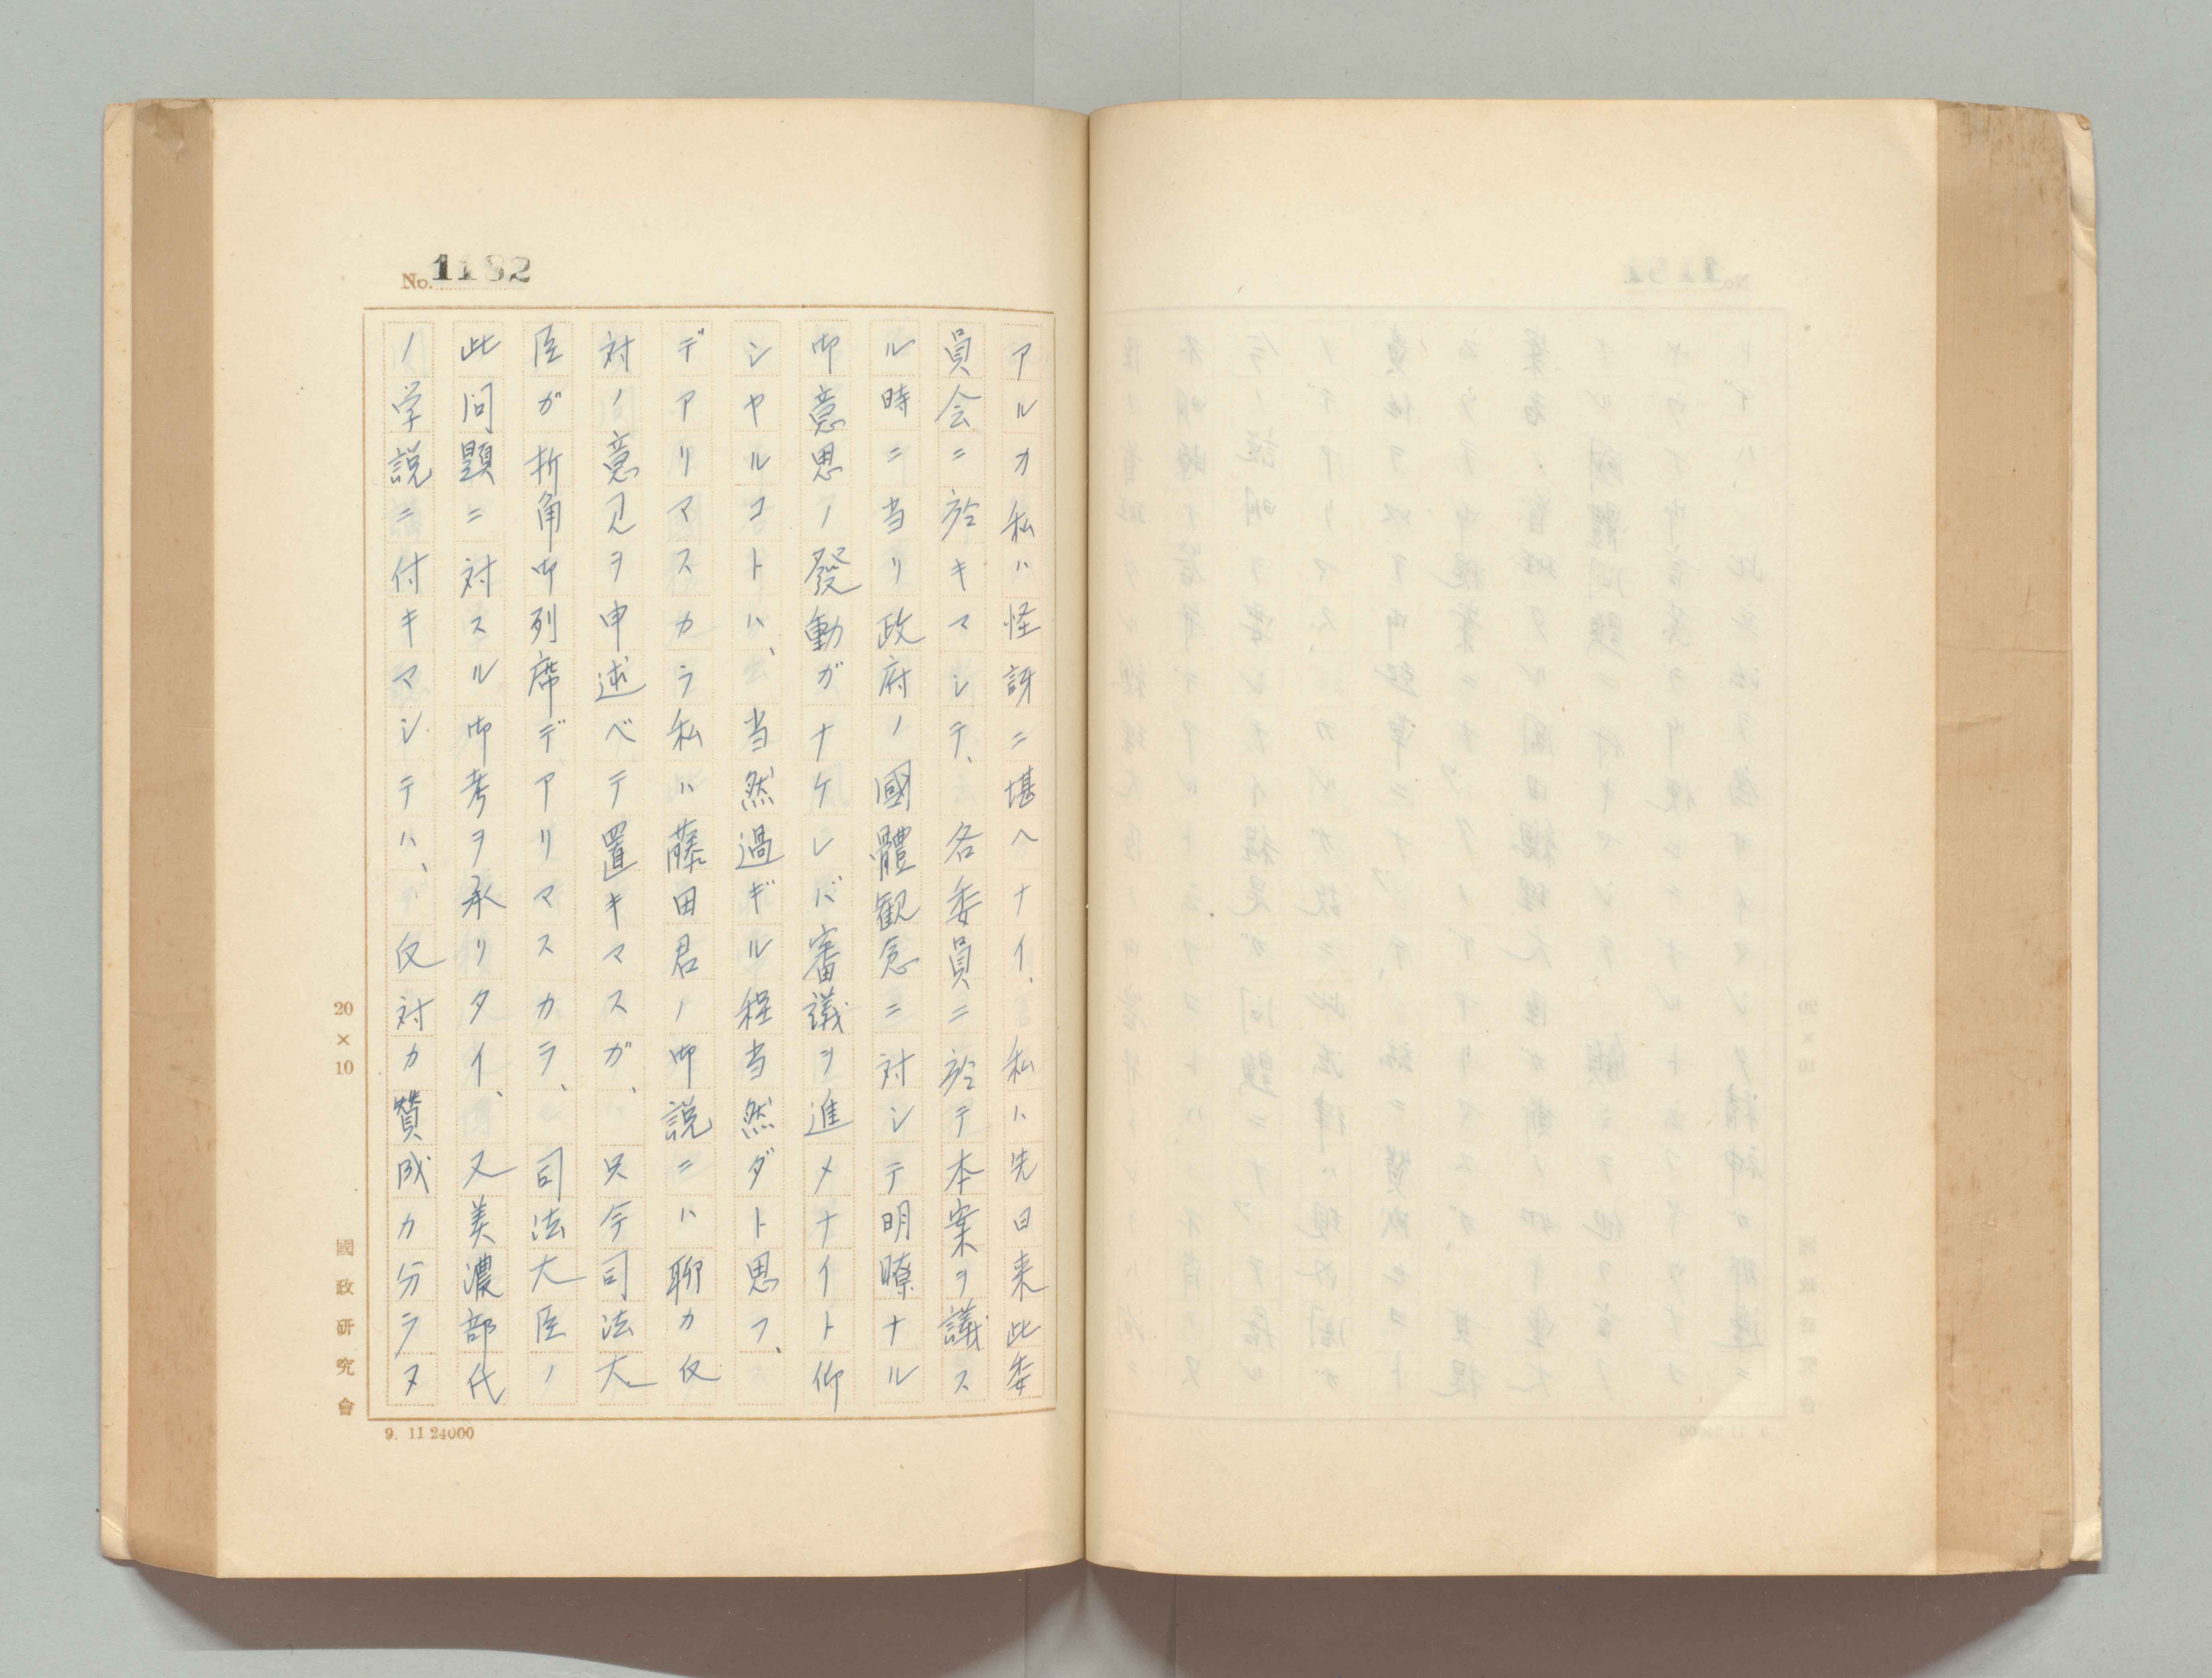 No. 1182
アルカ私ハ怪訝ニ堪ヘナイ、私ハ先日来此委
員会ニ於キマシテ、各委員ニ於テ本案ヲ議ス
ル時ニ当リ政府ノ國體観念ニ対シテ明瞭ナル
御意思ノ發動ガナケレバ審議ヲ進メナイト仰
シヤルコトハ、当然過ギル程当然ダト思フ、
デアリマスカラ私ハ藤田君ノ御説ニハ聊カ反
対ノ意見ヲ申述ベテ置キマスガ、只今司法大
臣ガ折角御列席デアリマスカラ、司法大臣ノ
此問題ニ対スル御考ヲ承リタイ、又美濃部代
ノ学説ニ付キマシテハ、反対カ賛成カ分ラヌ
20×10
國政研究會
9. 11 24000